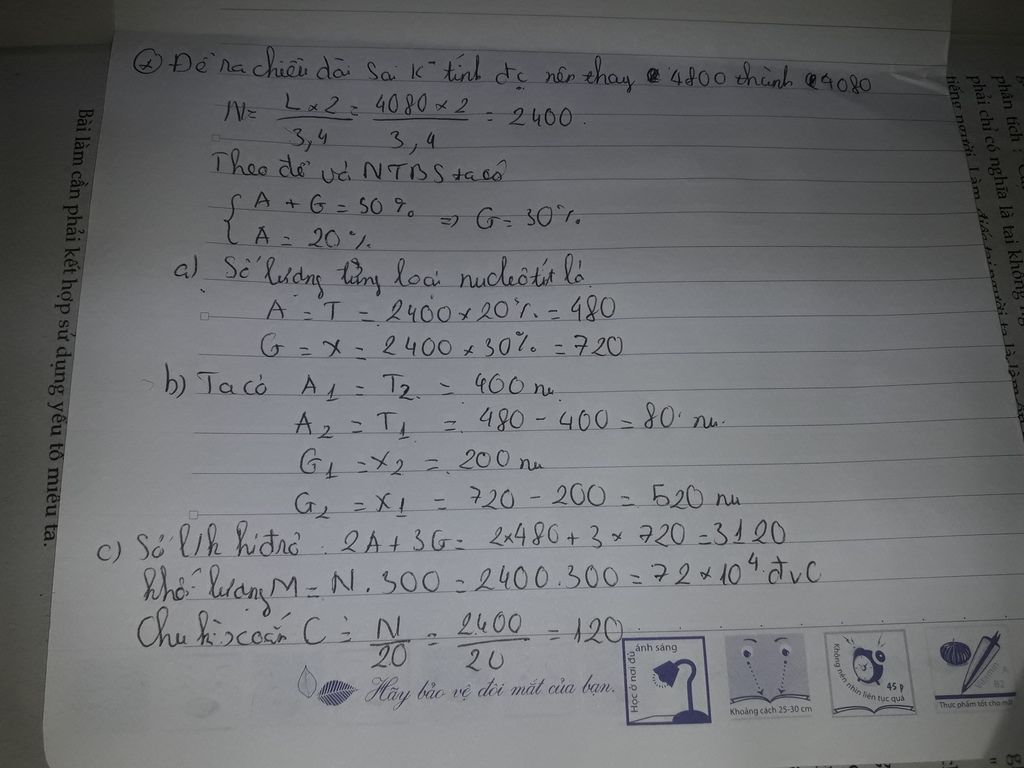 Đề ra chiều dài sai k tính đc nên thay 4800 thành 4080
N = L x 2 / 3,4 = 4080 x 2 / 3,4 = 2400
Theo đề và NTBS ta có
{ A + G = 50 % => G = 30%
A = 20%
a) Số lượng từng loại nucleôtit là
A = T = 2400 x 20% = 480
G = X = 2400 x 30% = 720
b) Ta có A1 = T2 = 400 nu
A2 = T1 = 480 - 400 = 80 nu.
G1 = X2 = 200 nu
G2 = X1 = 720 - 200 = 520 nu
c) Số l/k hiđrô : 2A + 3G = 2x480 + 3 x 720 = 3120
Khối lượng M = N . 300 = 2400 . 300 = 72 x 10^4 đvC
Chu kì xoắn C = N / 20 = 2400 / 20 = 120
Hãy bảo vệ đôi mắt của bạn.
Học ở nơi đủ ánh sáng
Khoảng cách 25-30 cm
Không nên nhìn liên tục quá 45 p
Thực phẩm tốt cho mắt
Bài làm cần phải kết hợp sử dụng yếu tố miêu tả.
phân tích :
phải chỉ có nghĩa là tai không
tiếng người.